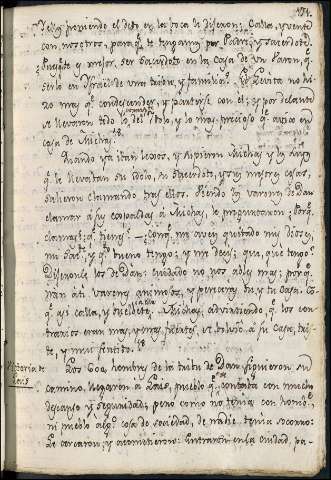 174.
Y ellos poniendo el dedo en la boca le dijeron: Calla, y vente
con nosotros, para q.e te tengamos por Padre, y sacerdote.
Puès te es mejor ser Sacerdote en la Casa de un Varon, q.e
serlo en Ysrael de una tribu, y familia? El Levita no hi-
zo mas q.e condescender, y partirse con el; y por delante
se llevaron todo lo del Ydolo, y lo mas precioso q.e avia en
casa de Michas.
Quando ya iban lexos, y supieron Michas y los suyos
q.e le llevaban su idolo, su Sacerdote, y sus mejores cosas,
salieron clamando tras ellos. Siendo los varones de Dan
clamar a sus espaldas a Michas, le preguntaron: Porq.e
clamas? q.e tienes? Conq.e me aveis quitado mis Dioses,
mi Sac.te y q.to bueno tengo; y me decis: que, que tengo?
Dijeronle los de Dan: cuidado no nos ables mas; porq.e
iran a ti varones animosos, y pereceras tu y tu Casa. Co-
q.e asi calla, y buelvete. Michas, advirtiendo q.e los con-
trarios eran mas, y mas fuertes, se bolvió a su Casa, tris-
te, y mui sentido.
Victoria de Lais
Los 600. hombres de la tribu de Dan siguieron su
camino, llegaron a Lais, pueblo q.e contaba con mucho
descanso y seguridad; pero como no tenia con hombres,
ni pueblo alg.o cosa de sociedad, de nadie tenia socorro:
Le cercaron; y acometieron: Entraron en la ciudad, pa-